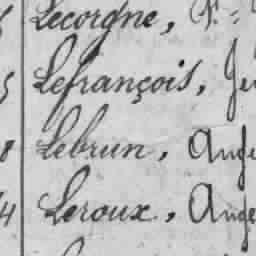 Lecorgne,
Lefrançois, Je
Lebrun, Ange
Leroux, Ange